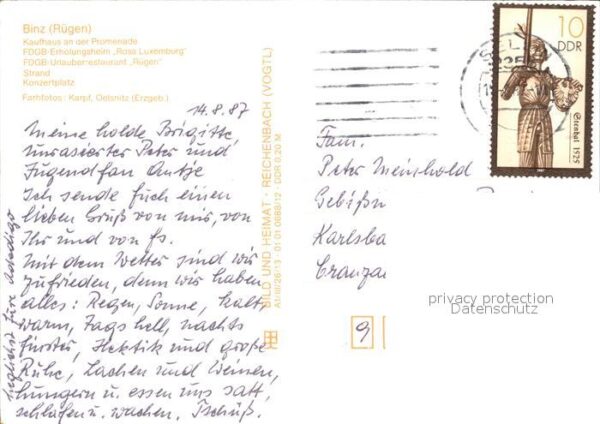 Binz (Rügen)
Kaufhaus an der Promenade
FDGB-Erholungsheim „Rosa Luxemburg"
FDGB-Urlauberrestaurant „Rügen"
Strand
Konzertplatz
Farbfotos: Karpf, Oelsnitz (Erzgeb.)
14.8.87
Meine holde Brigitte,
unrasierter Peter und
Jugendfan Antje
Ich sende Euch einen
lieben Gruß von mir, von
Ihr und von
Mit dem Wetter sind wir
zufrieden, denn wir haben
alles: Regen, Sonne, kalt,
warm, Tags hell, nachts
finster, Hektik und große
Ruhe, Lachen und Weinen,
hungern u. essen uns satt,
schlafen u. wachen. Tschüß.
herzlichst Eure
BILD UND HEIMAT · REICHENBACH (VOGTL)
A1/III/26/13 01 01 0688/12 DDR 0,20 M
10
DDR
Stendal 1525
SEL
Fam.
Peter Meinhold
Karlsba
Cranza
9
privacy protection
Datenschutz